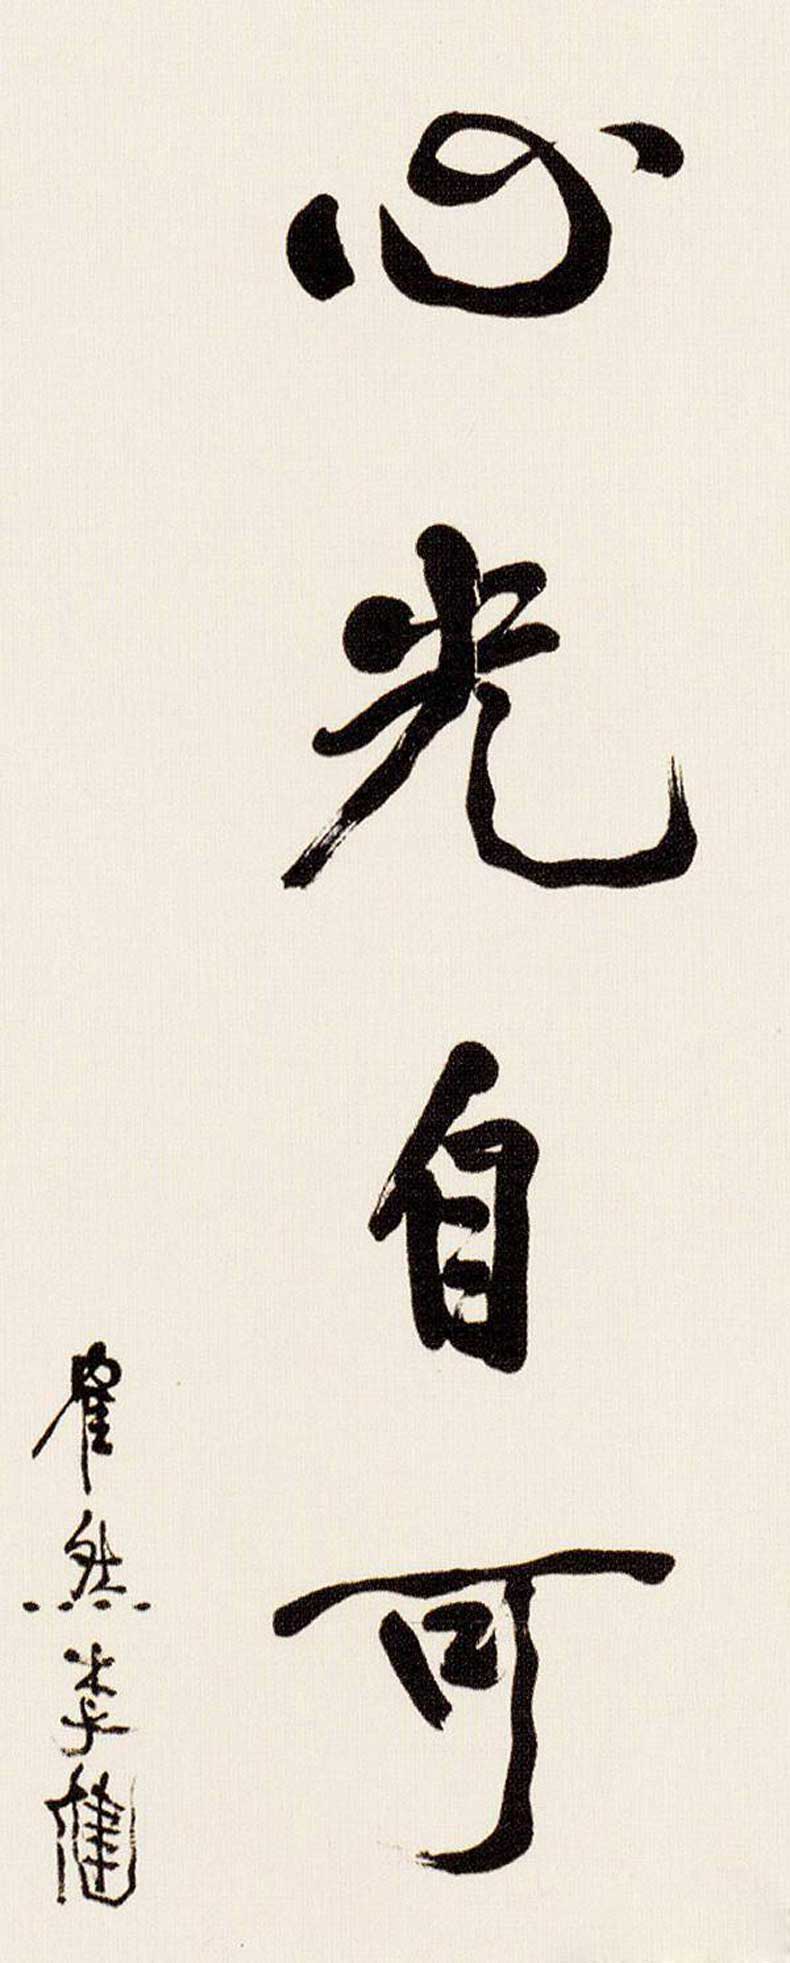 心光自可
然李健